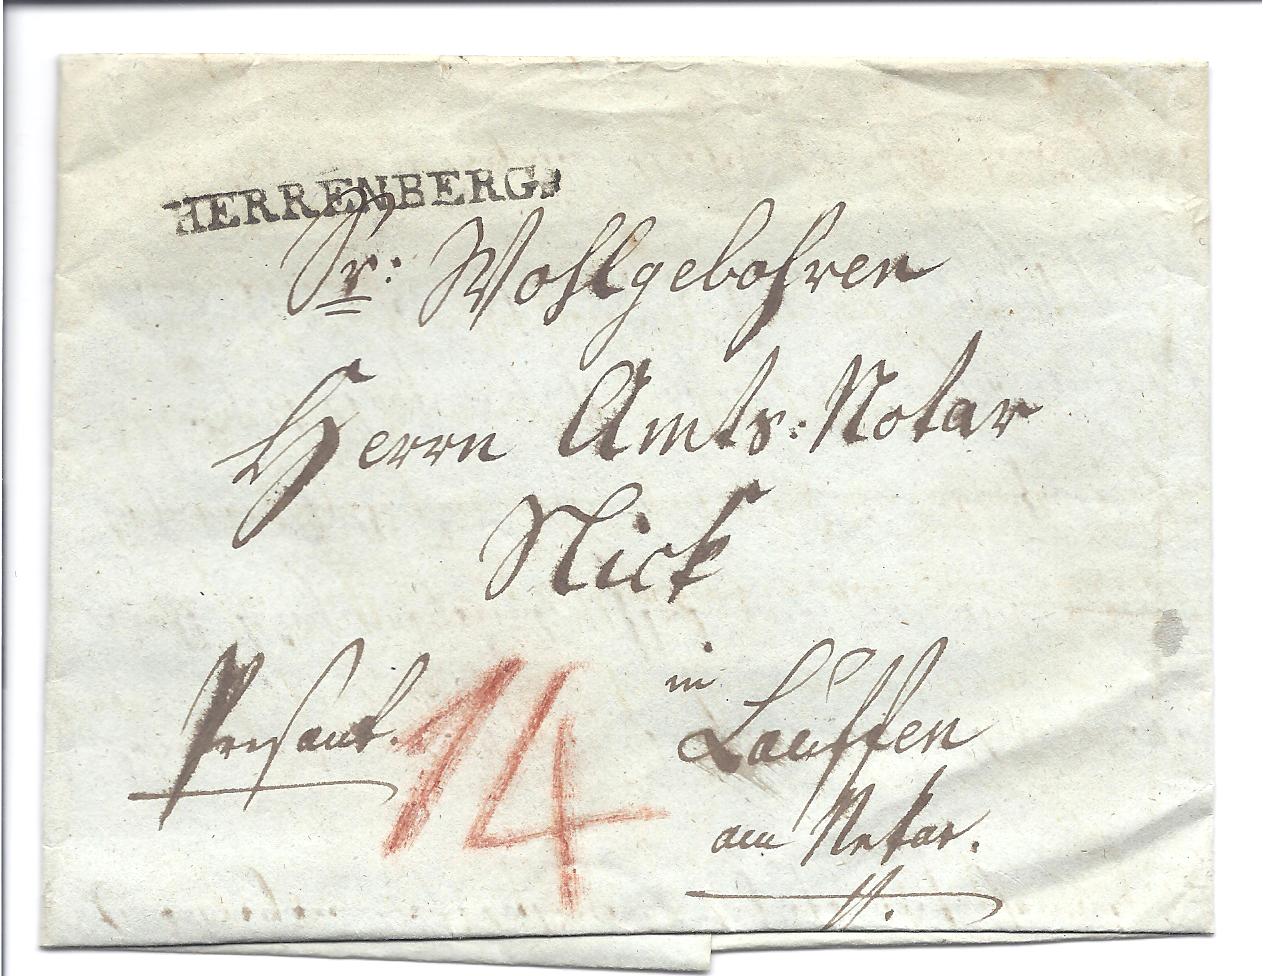 HERRENBERG.
Sr: Wohlgebohren
Herrn Amts-Notar
Nick
in
Lauffen
am Nekar.
Presant.
14